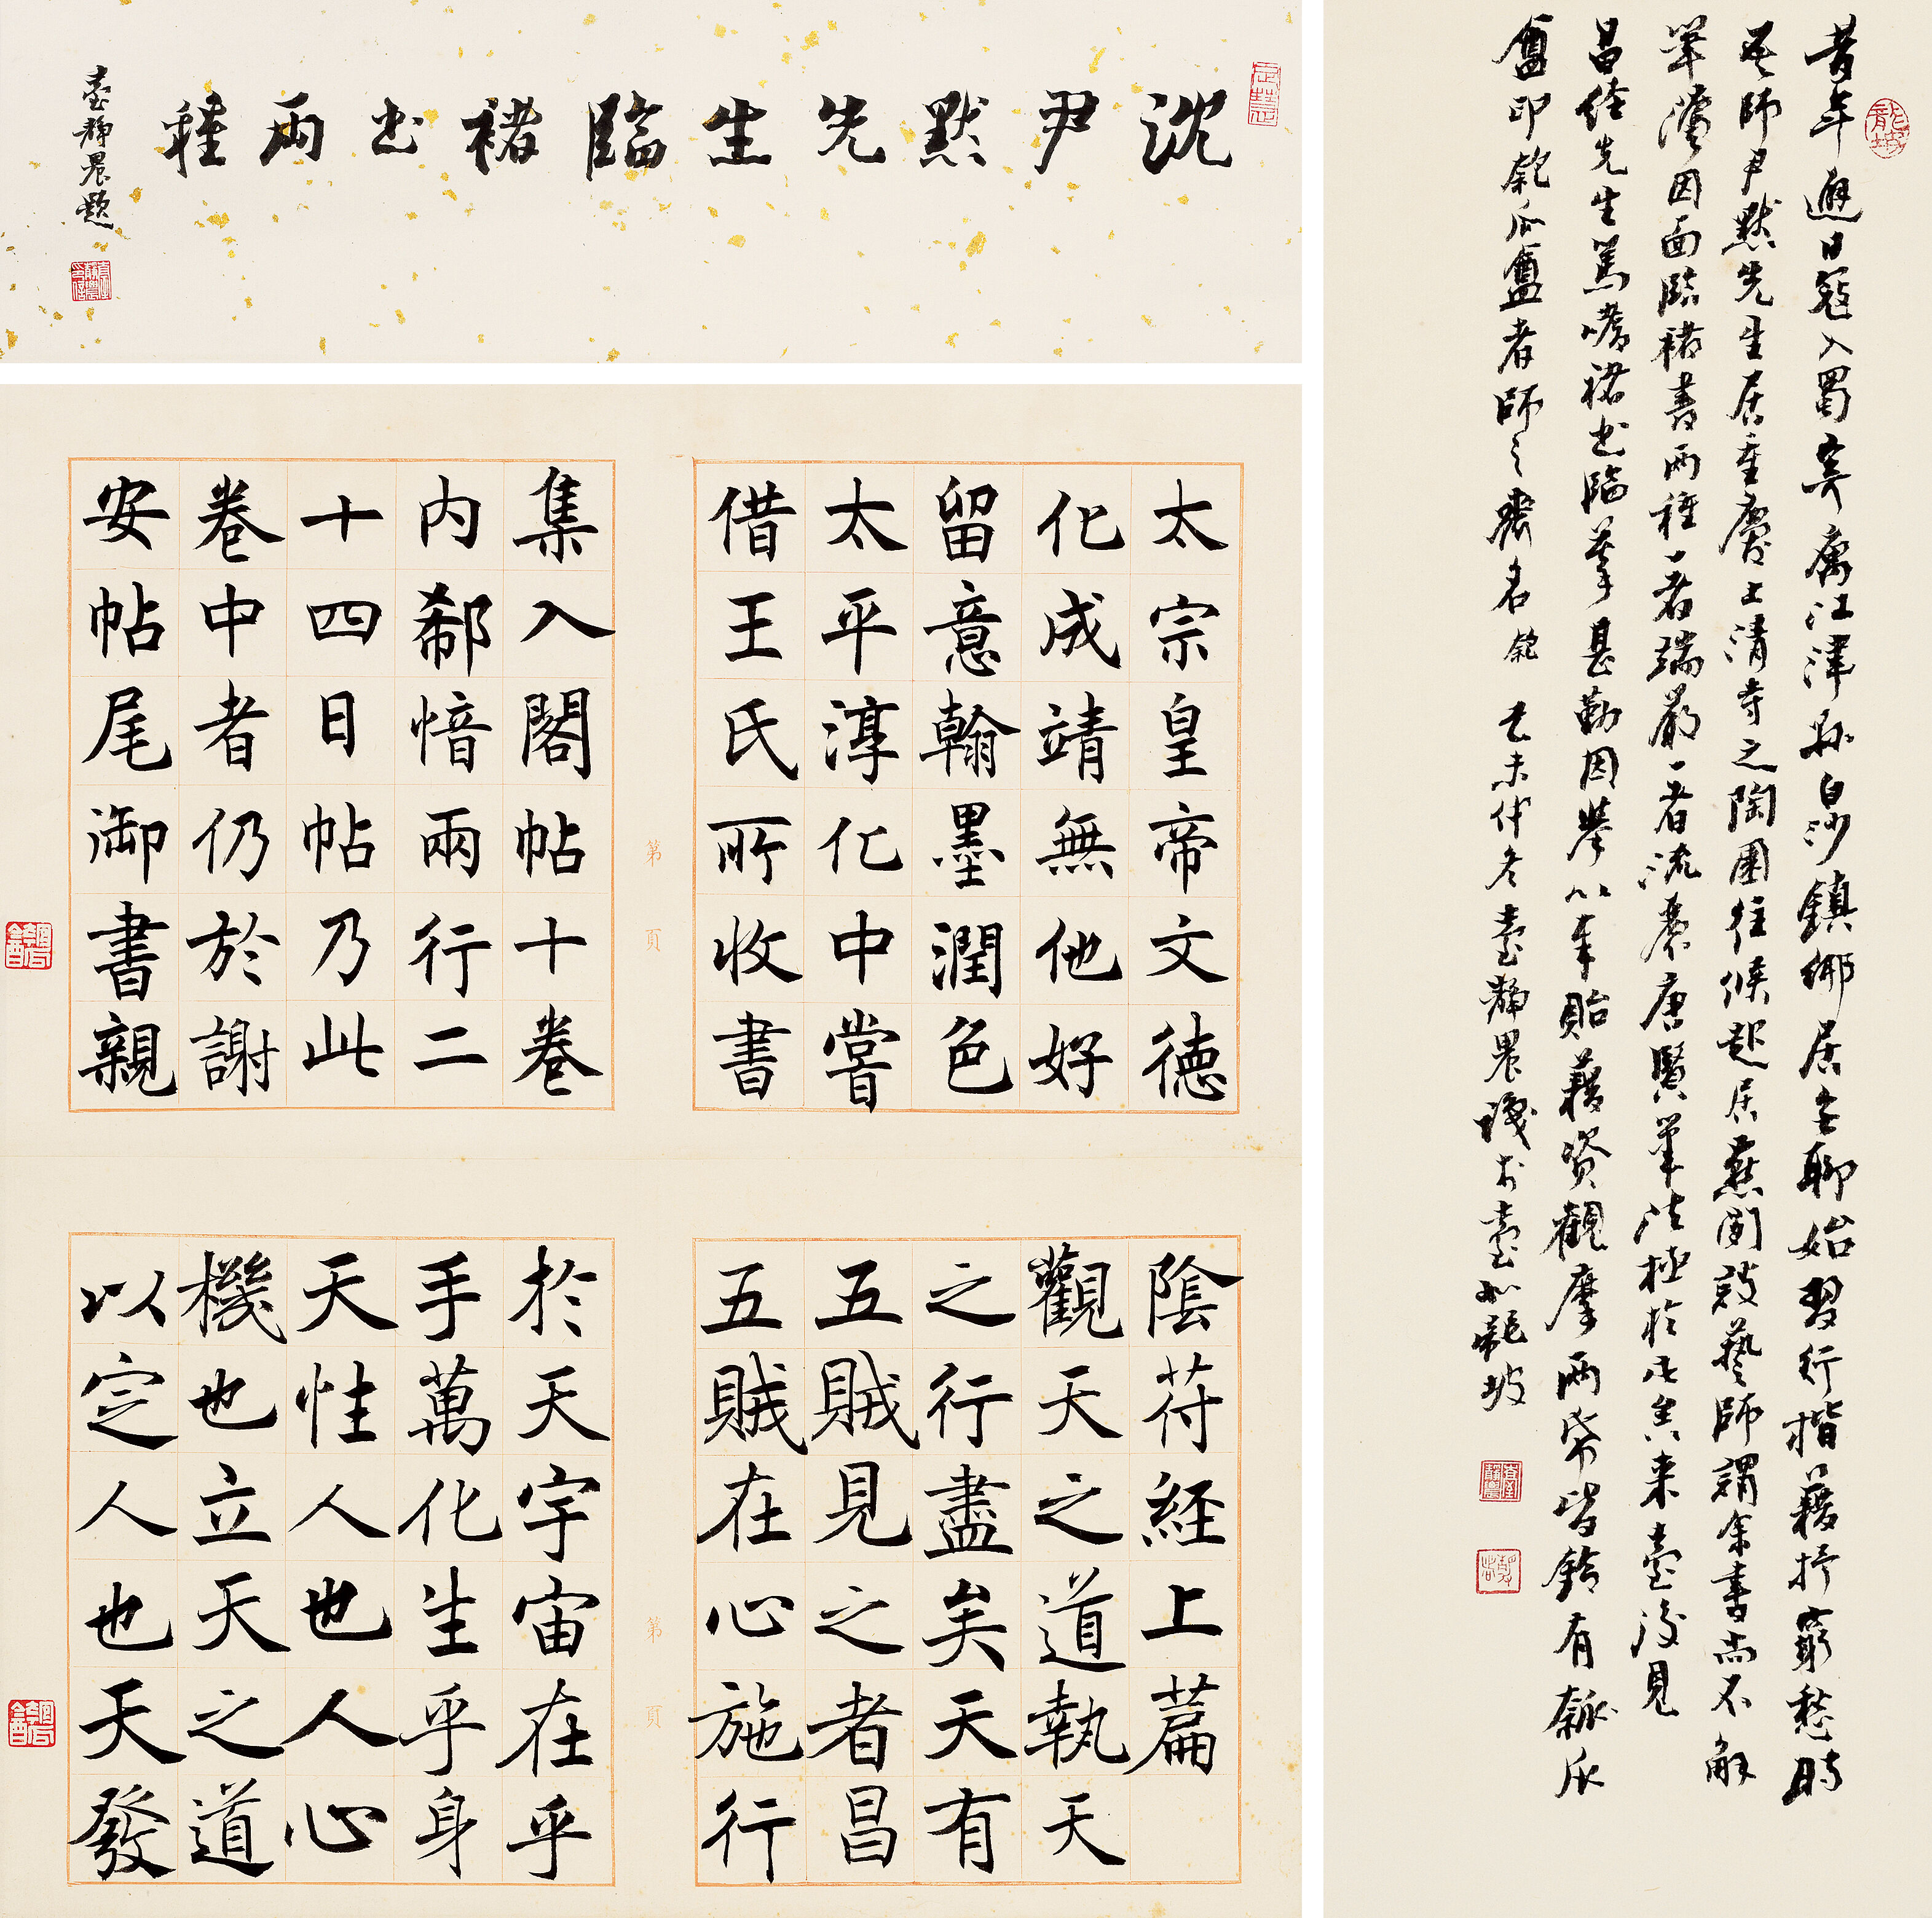 沈尹默先生臨褚書兩種
臺靜農題
太宗皇帝文德
化成靖無他好
留意翰墨潤色
太平淳化中嘗
借王氏所收書
集入閣帖十卷
內郗愔兩行二
十四日帖乃此
卷中者仍於謝
安帖尾御書親
第 頁
陰苻經上篇
觀天之道執天
之行盡矣天有
五賊見之者昌
五賊在心施行
於天宇宙在乎
手萬化生乎身
天性人也人心
機也立天之道
以定人也天發
第 頁
昔年避日寇入蜀寄寓江津縣白沙鎮鄉居無聊始習行楷藉抒窮愁時
吾師尹默先生居重慶上清寺之陶園往候起居燕閒談藝師謂余書尚不解
筆法因面臨褚書兩種一者端嚴一者流麗唐賢筆法極於此矣來臺後見
昌銓先生篤嗜褚書臨摹甚勤因舉以奉貽藉資觀摩兩帋皆鈐有瓠瓜
盦印瓠瓜盦者師之齋名 乙未仲冬臺靜農識於臺北龍坡